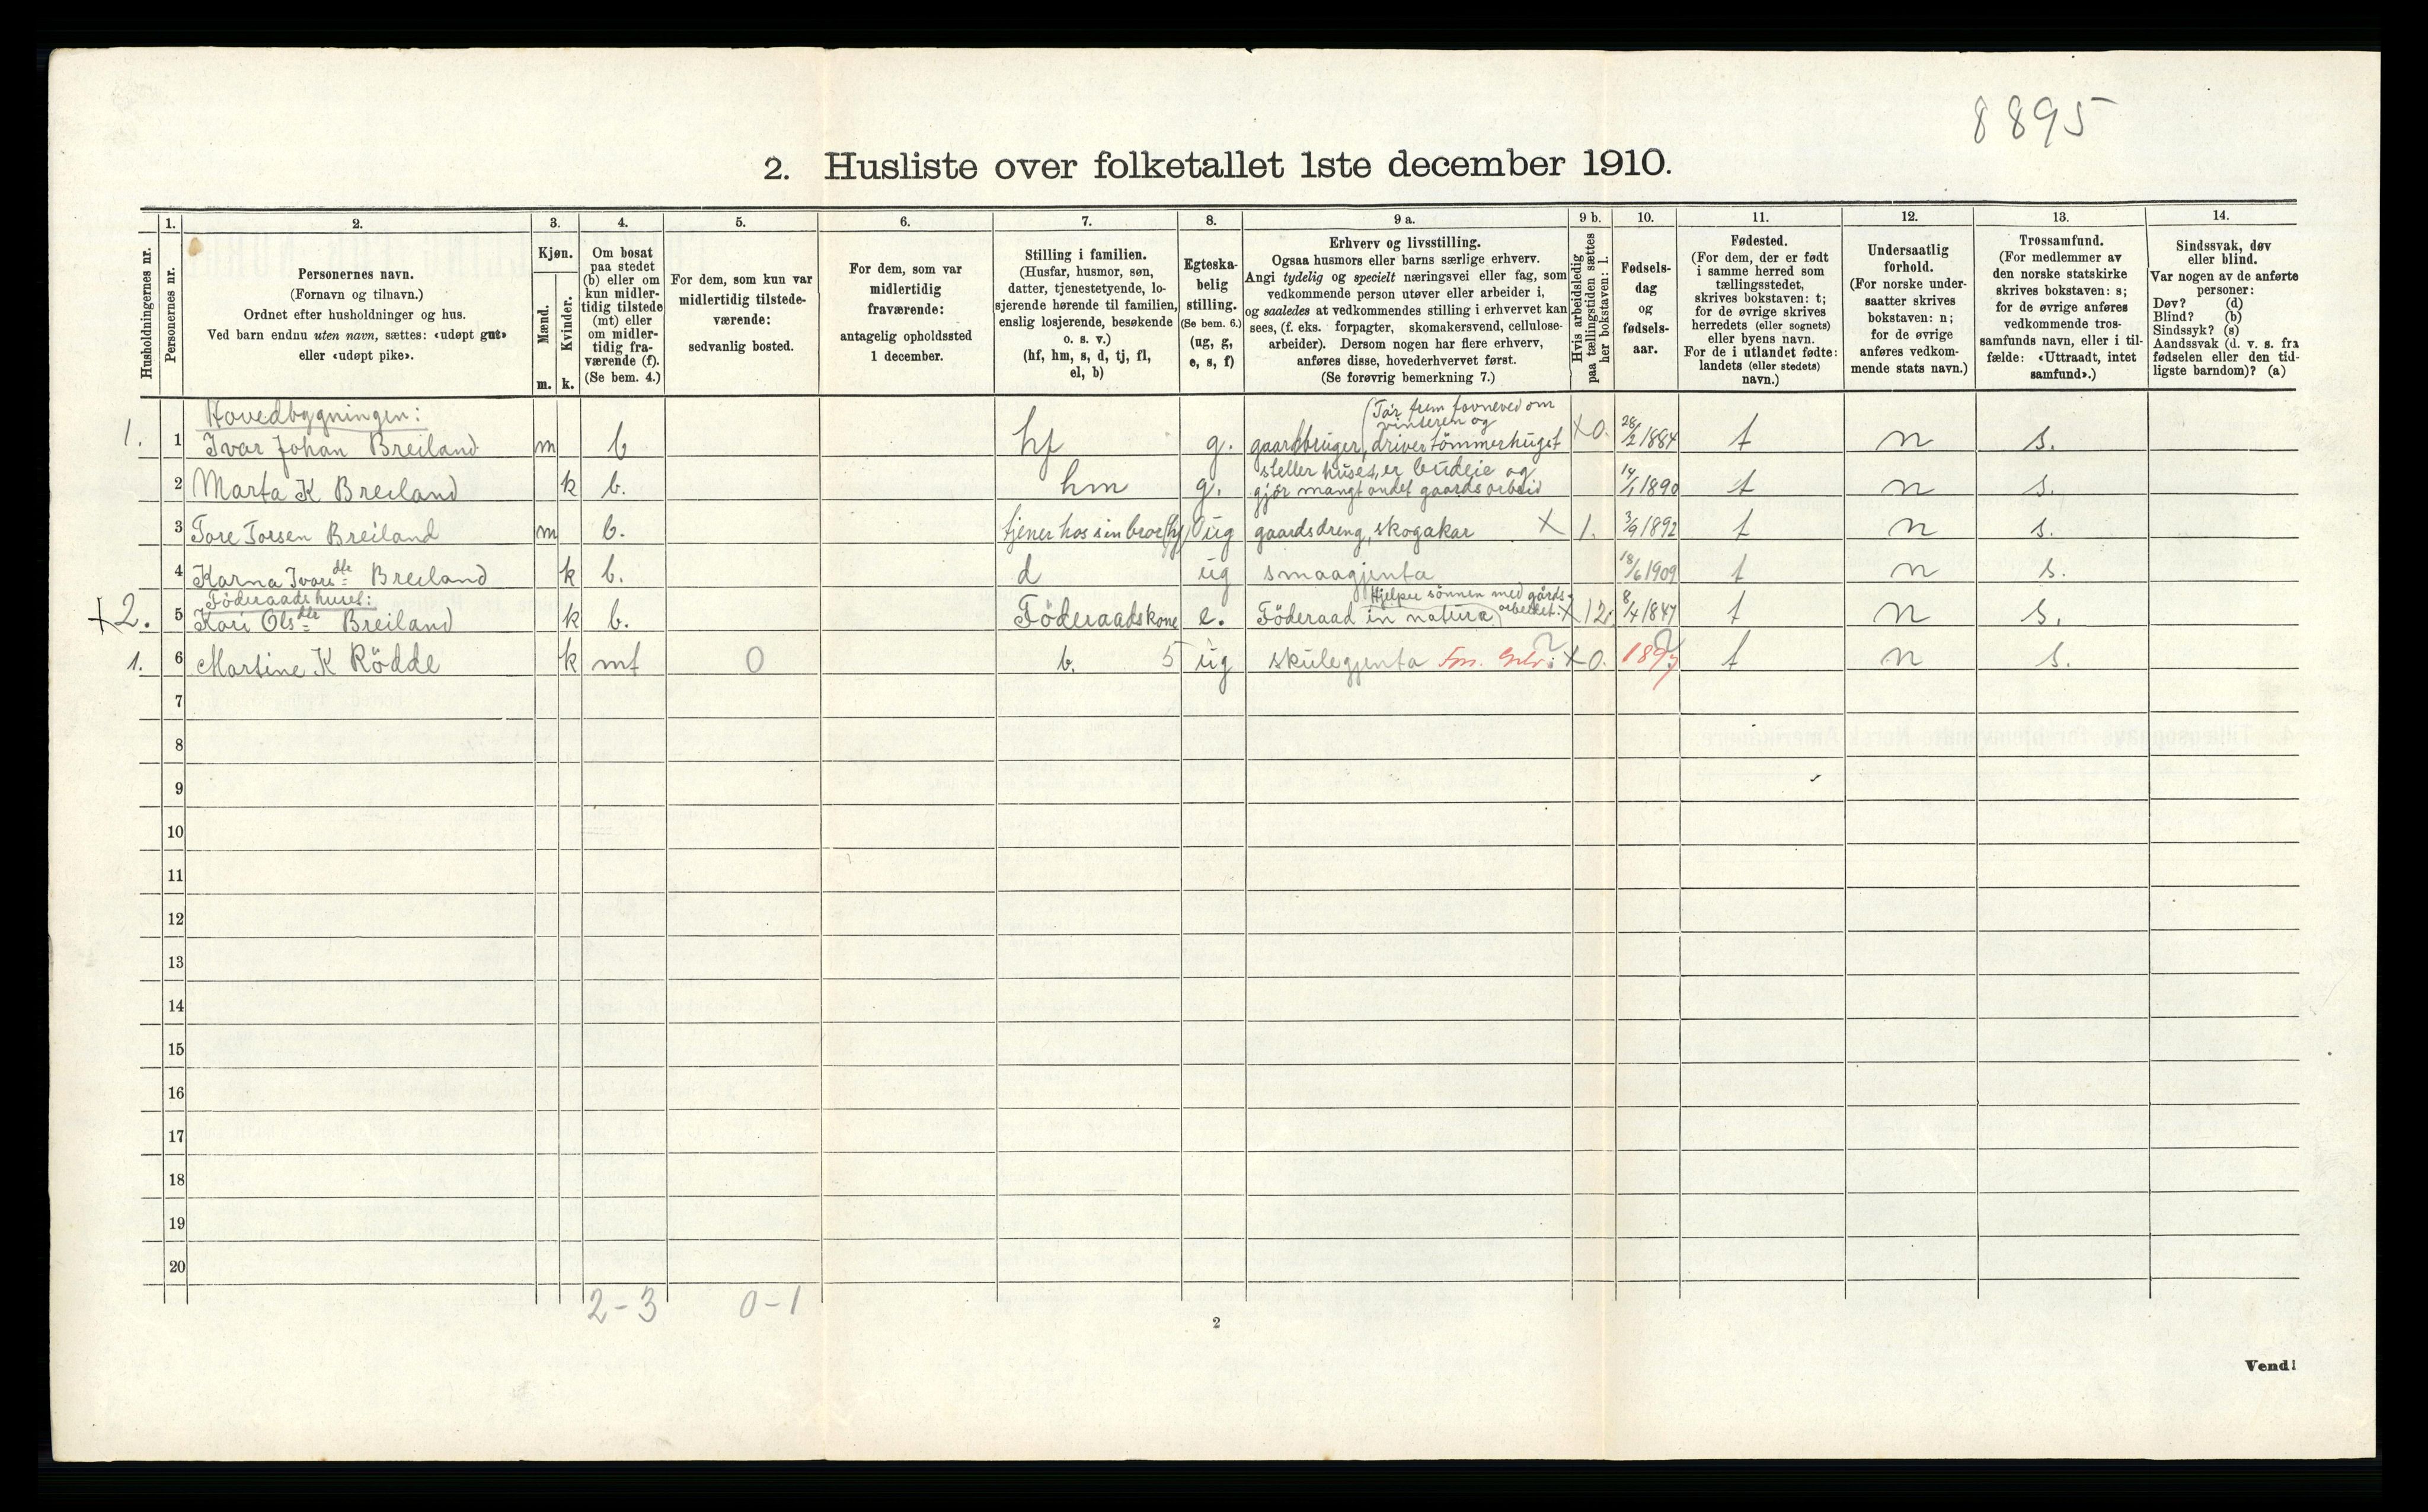 8895
2. Husliste over folketallet 1ste december 1910.
Husholdningernes nr.
1. Personernes nr.
2. Personernes navn.
(Fornavn og tilnavn.)
Ordnet efter husholdninger og hus.
Ved barn endnu uten navn, sættes: «udøpt gut»
eller «udøpt pike».
3. Kjøn.
Mænd. m.
Kvinder. k.
4. Om bosat
paa stedet
(b) eller om
kun midler-
tidig tilstede
(mt) eller
om midler-
tidig fra-
værende (f).
(Se bem. 4.)
5. For dem, som kun var
midlertidig tilstede-
værende:
sedvanlig bosted.
6. For dem, som var
midlertidig
fraværende:
antagelig opholdssted
1 december.
7. Stilling i familien.
(Husfar, husmor, søn,
datter, tjenestetyende, lo-
sjerende hørende til familien,
enslig losjerende, besøkende
o. s. v.)
(hf, hm, s, d, tj, fl,
el, b)
8. Egteska-
belig
stilling.
(Se bem. 6.)
(ug, g,
e, s, f)
9 a. Erhverv og livsstilling.
Ogsaa husmors eller barns særlige erhverv.
Angi tydelig og specielt næringsvei eller fag, som
vedkommende person utøver eller arbeider i,
og saaledes at vedkommendes stilling i erhvervet kan
sees, (f. eks. forpagter, skomakersvend, cellulose-
arbeider). Dersom nogen har flere erhverv,
anføres disse, hovederhvervet først.
(Se forøvrig bemerkning 7.)
9 b. Hvis arbeidsledig
paa tællingstiden sættes
her bokstaven: l.
10. Fødsels-
dag
og
fødsels-
aar.
11. Fødested.
(For dem, der er født
i samme herred som
tællingsstedet,
skrives bokstaven: t;
for de øvrige skrives
herredets (eller sognets)
eller byens navn.
For de i utlandet fødte:
landets (eller stedets)
navn.)
12. Undersaatlig
forhold.
(For norske under-
saatter skrives
bokstaven: n;
for de øvrige
anføres vedkom-
mende stats navn.)
13. Trossamfund.
(For medlemmer av
den norske statskirke
skrives bokstaven: s;
for de øvrige anføres
vedkommende tros-
samfunds navn, eller i til-
fælde: «Uttraadt, intet
samfund».)
14. Sindssvak, døv
eller blind.
Var nogen av de anførte
personer:
Døv? (d)
Blind? (b)
Sindssyk? (s)
Aandssvak (d. v. s. fra
fødselen eller den tid-
ligste barndom)? (a)
Hovedbygningen:
(Tar frem favneved om
vinteren og
1. 1 Ivar Johan Breiland m b hf g. gaardbruger, driver tömmerhuget X 0. 28/2 1884 t n s.
steller huset, er budeie og
2 Marta K Breiland k b. hm g. gjör mangt andet gaardsarbeid 14/1 1890 t n s.
3 Tore Torsen Breiland m b. tjener hos sin bror (hf) ug gaardsdreng, skogakar X 1. 3/9 1892 t n s.
4 Karna Ivarsdtr Breiland k b. d ug smaagjenta 18/6 1909 t n s.
Föderaadshuset:
Hjelper sönnen med gårds-
arbeidet.
+2. 5 Kari Olsdtr Breiland k b. Föderaadskone e. Föderaad in natura X 12. 8/4 1847 t n s.
1. 6 Martine K Rödde k mt 0 b. 5 ug skulegjenta ? X 0. 1897 ? t n s.
7
8
9
10
11
12
13
14
15
16
17
18
19
20
2-3 0-1
2
Vend!